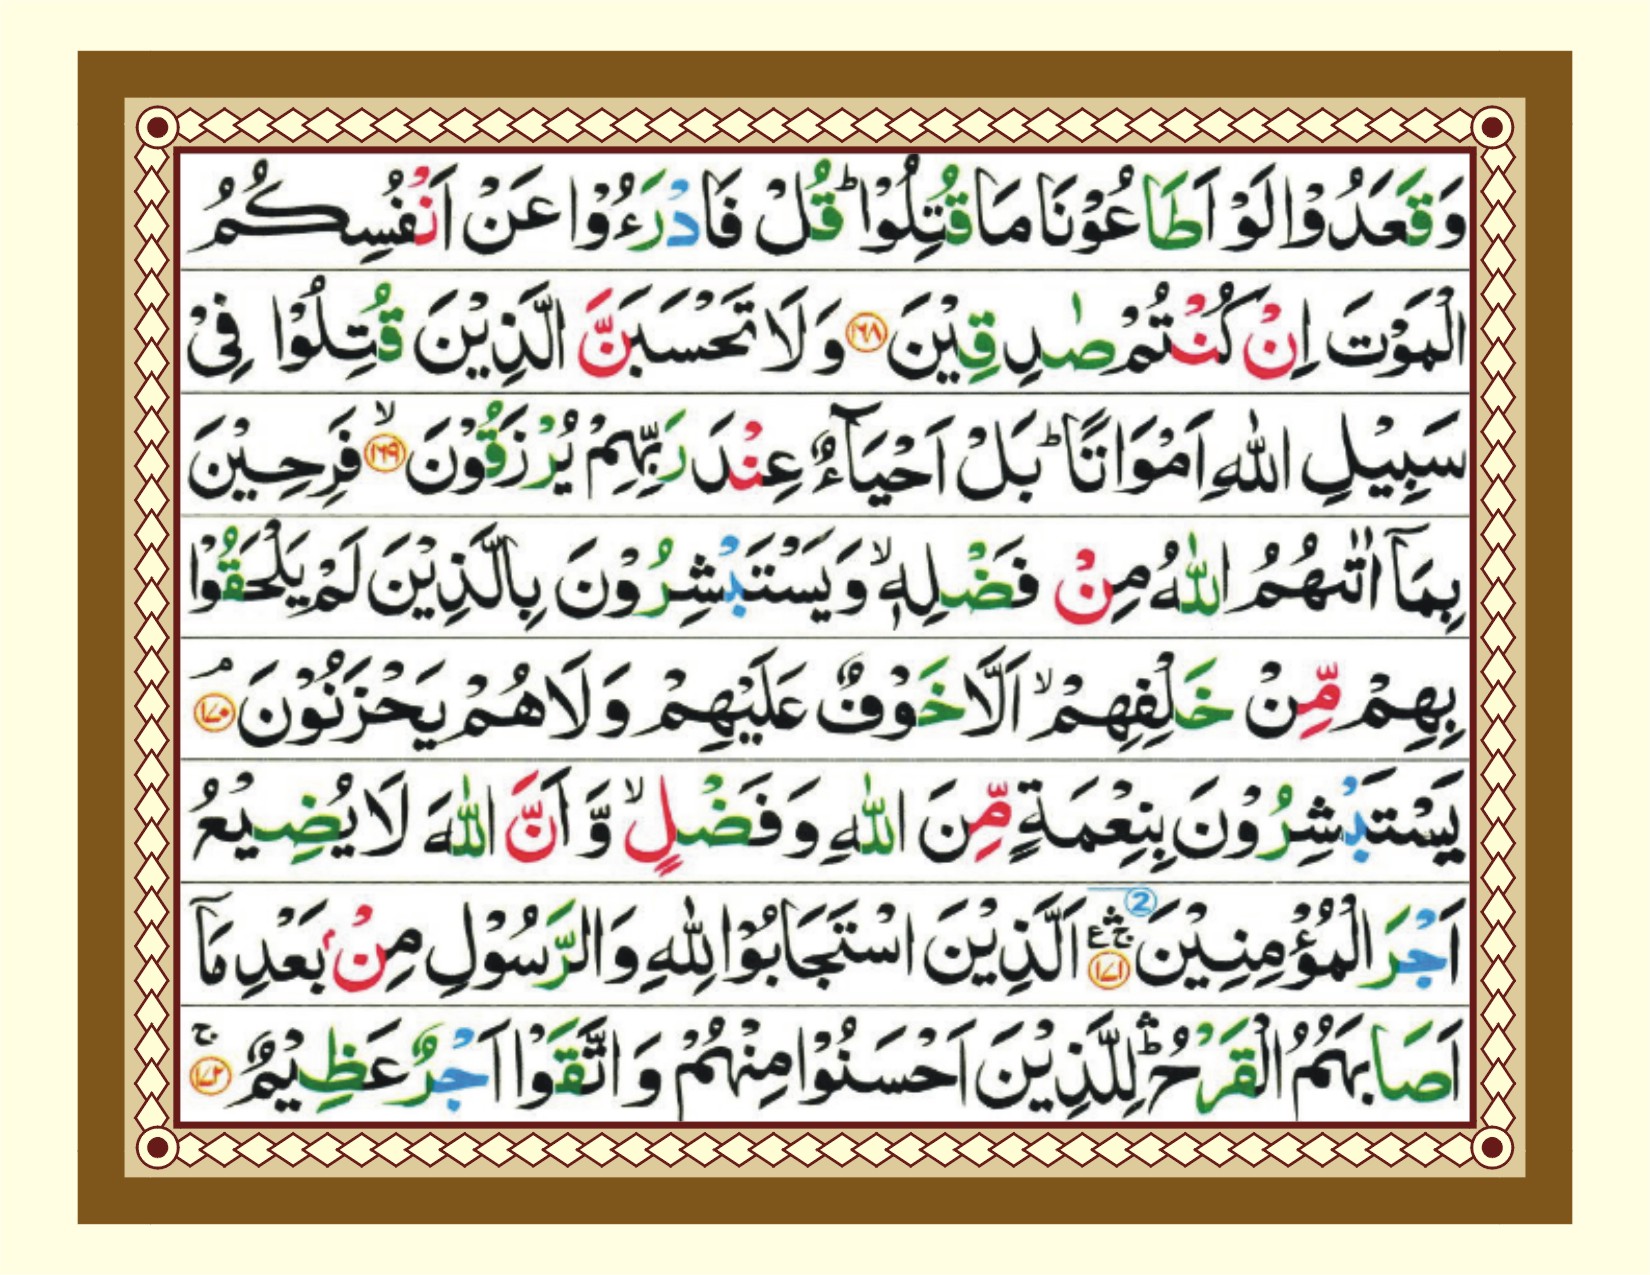 وَقَعَدُوْا لَوْ اَطَاعُوْنَا مَا قُتِلُوْا ؕ قُلْ فَادْرَءُوْا عَنْ اَنْفُسِكُمُ
الْمَوْتَ اِنْ كُنْتُمْ صٰدِقِيْنَ ۱۶۸ وَلَا تَحْسَبَنَّ الَّذِيْنَ قُتِلُوْا فِىْ
سَبِيْلِ اللّٰهِ اَمْوَاتًا ؕ بَلْ اَحْيَآءٌ عِنْدَ رَبِّهِمْ يُرْزَقُوْنَ ۙ ۱۶۹ فَرِحِيْنَ
بِمَاۤ اٰتٰٮهُمُ اللّٰهُ مِنْ فَضْلِهٖ ۙ وَيَسْتَبْشِرُوْنَ بِالَّذِيْنَ لَمْ يَلْحَقُوْا
بِهِمْ مِّنْ خَلْفِهِمْ ۙ اَلَّا خَوْفٌ عَلَيْهِمْ وَلَا هُمْ يَحْزَنُوْنَ ۘ ۱۷۰
يَسْتَبْشِرُوْنَ بِنِعْمَةٍ مِّنَ اللّٰهِ وَفَضْلٍ ۙ وَّاَنَّ اللّٰهَ لَا يُضِيْعُ
اَجْرَ الْمُؤْمِنِيْنَ 2 ۛۚ ع ۱۷۱ اَلَّذِيْنَ اسْتَجَابُوْا لِلّٰهِ وَالرَّسُوْلِ مِنْۢ بَعْدِ مَاۤ
اَصَابَهُمُ الْقَرْحُ ؕۛ لِلَّذِيْنَ اَحْسَنُوْا مِنْهُمْ وَاتَّقَوْا اَجْرٌ عَظِيْمٌ ۚ ۱۷۲